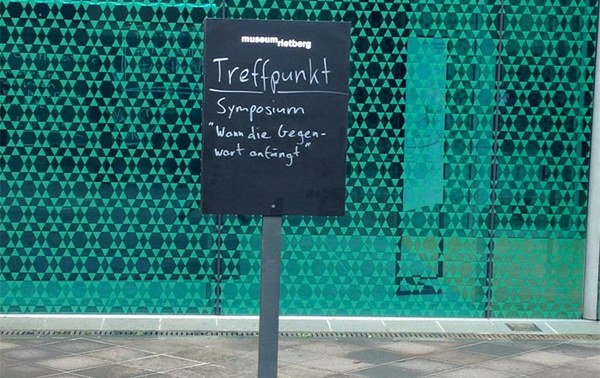 museum rietberg
Treffpunkt
Symposium
"Wann die Gegen-
wart anfängt"